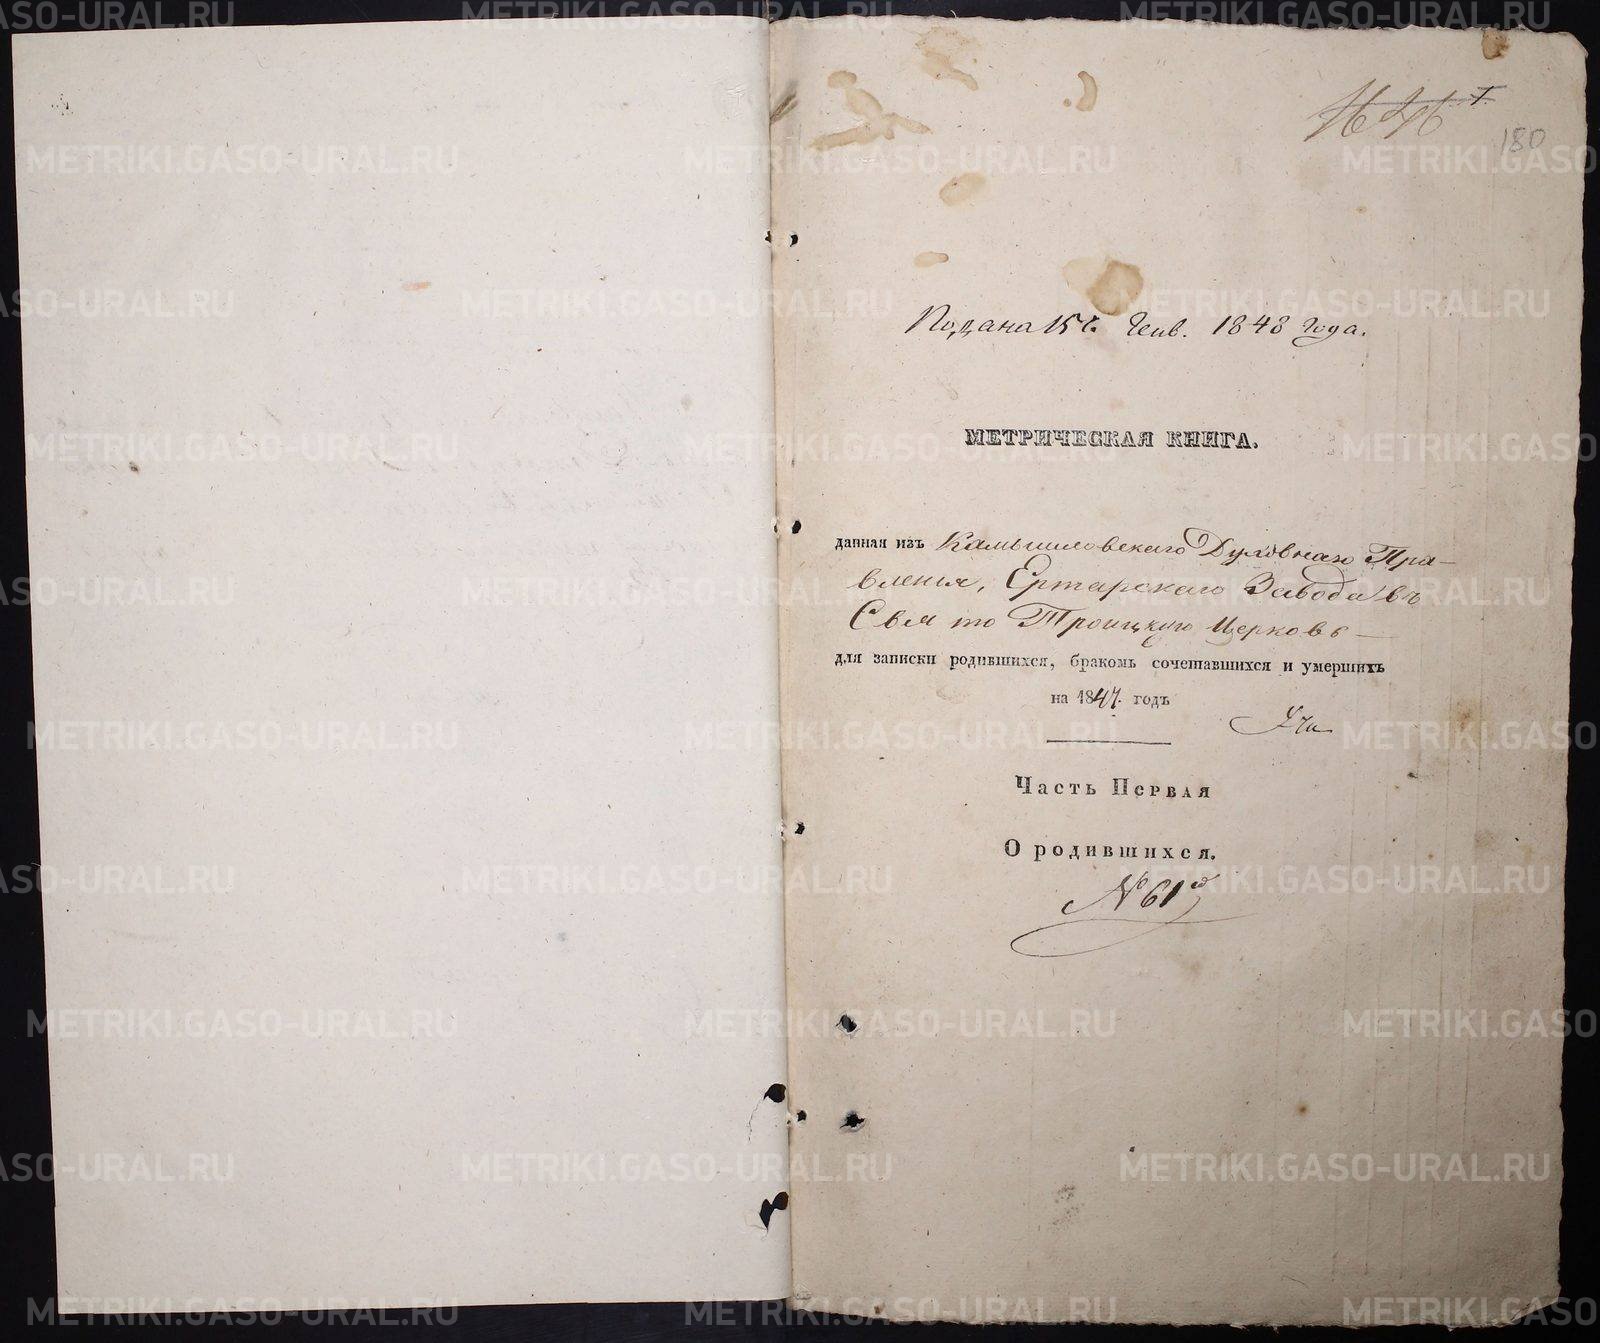 180
Подана 15 г. Генв. 1848 года.
МЕТРИЧЕСКАЯ КНИГА.
данная изъ Камышловскаго Духовнаго Пра-
вленія, Ертарскаго Завода въ
Свято Троицкую Церковь
для записки родившихся, бракомъ сочетавшихся и умершихъ
на 1847. годъ
Часть Первая
О родившихся.
№ 61й
METRIKI.GASO-URAL.RU